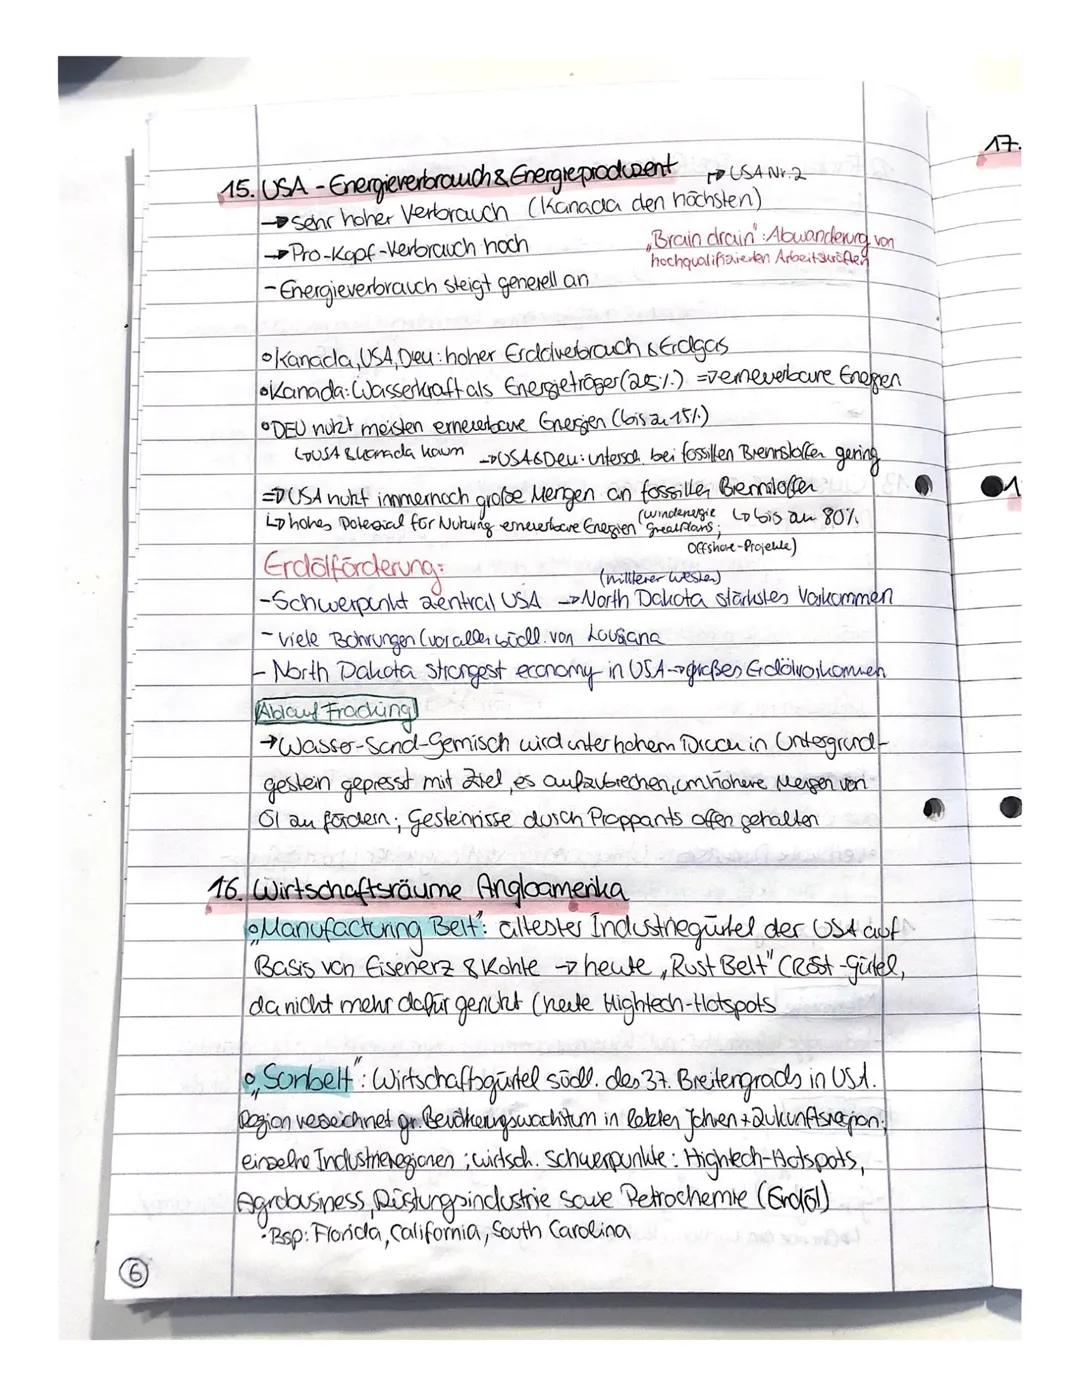 17.
15. USA - Energieverbrauch & Energieproduzent
↱ USA Nr. 2
→ sehr hoher Verbrauch (Kanada den höchsten)
→ Pro-Kopf-Verbrauch hoch
„Brain drain": Abwanderung von
hochqualifizierten Arbeitskräften
- Energieverbrauch steigt generell an
• Kanada, USA, Deu: hoher Erdölverbrauch & Erdgas
• Kanada: Wasserkraft als Energieträger (25%) ⇒ erneuerbare Energien
• DEU nutzt meisten erneuerbare Energien (bis zu 15%)
↳ USA & Kanada kaum → USA & Deu: untersch. bei fossillen Brennstoffen gering
⇒ USA nutzt immernoch große Mengen an fossillen Brennstoffen
↳ hohes Potenzial für Nutzung erneuerbare Energien (Windenergie ↳ bis zu 80%
Great Plains;
Offshore-Projekte)
Erdölförderung:
(mittlerer Westen)
- Schwerpunkt zentral USA → North Dakota stärkstes Vorkommen
- viele Bohrungen (vor allem südl. von Lousiana
- North Dakota strongest economy in USA → großes Erdölvorkommen
Ablauf Fracking
→ Wasser-Sand-Gemisch wird unter hohem Druck in Untergrund-
gestein gepresst mit Ziel, es aufzubrechen, um höhere Mengen von
Öl zu fördern; Gesteinrisse durch Proppants offen gehalten
16. Wirtschaftsräume Angloamerika
• „Manufacturing Belt": ältester Industriegürtel der USA auf
Basis von Eisenerz & Kohle → heute „Rust Belt" (Rost-Gürtel,
da nicht mehr dafür genutzt (heute Hightech-Hotspots
• „Sonbelt": Wirtschaftsgürtel südl. des 37. Breitengrads in USA.
Region verzeichnet gr. Bevölkerungswachstum in letzten Jahren + Zukunftsregion;
einzelne Industrieregionen; wirtsch. Schwerpunkte: Hightech-Hotspots,
Agrobusiness, Rüstungsindustrie sowie Petrochemie (Erdöl)
• Bsp: Florida, California, South Carolina
6